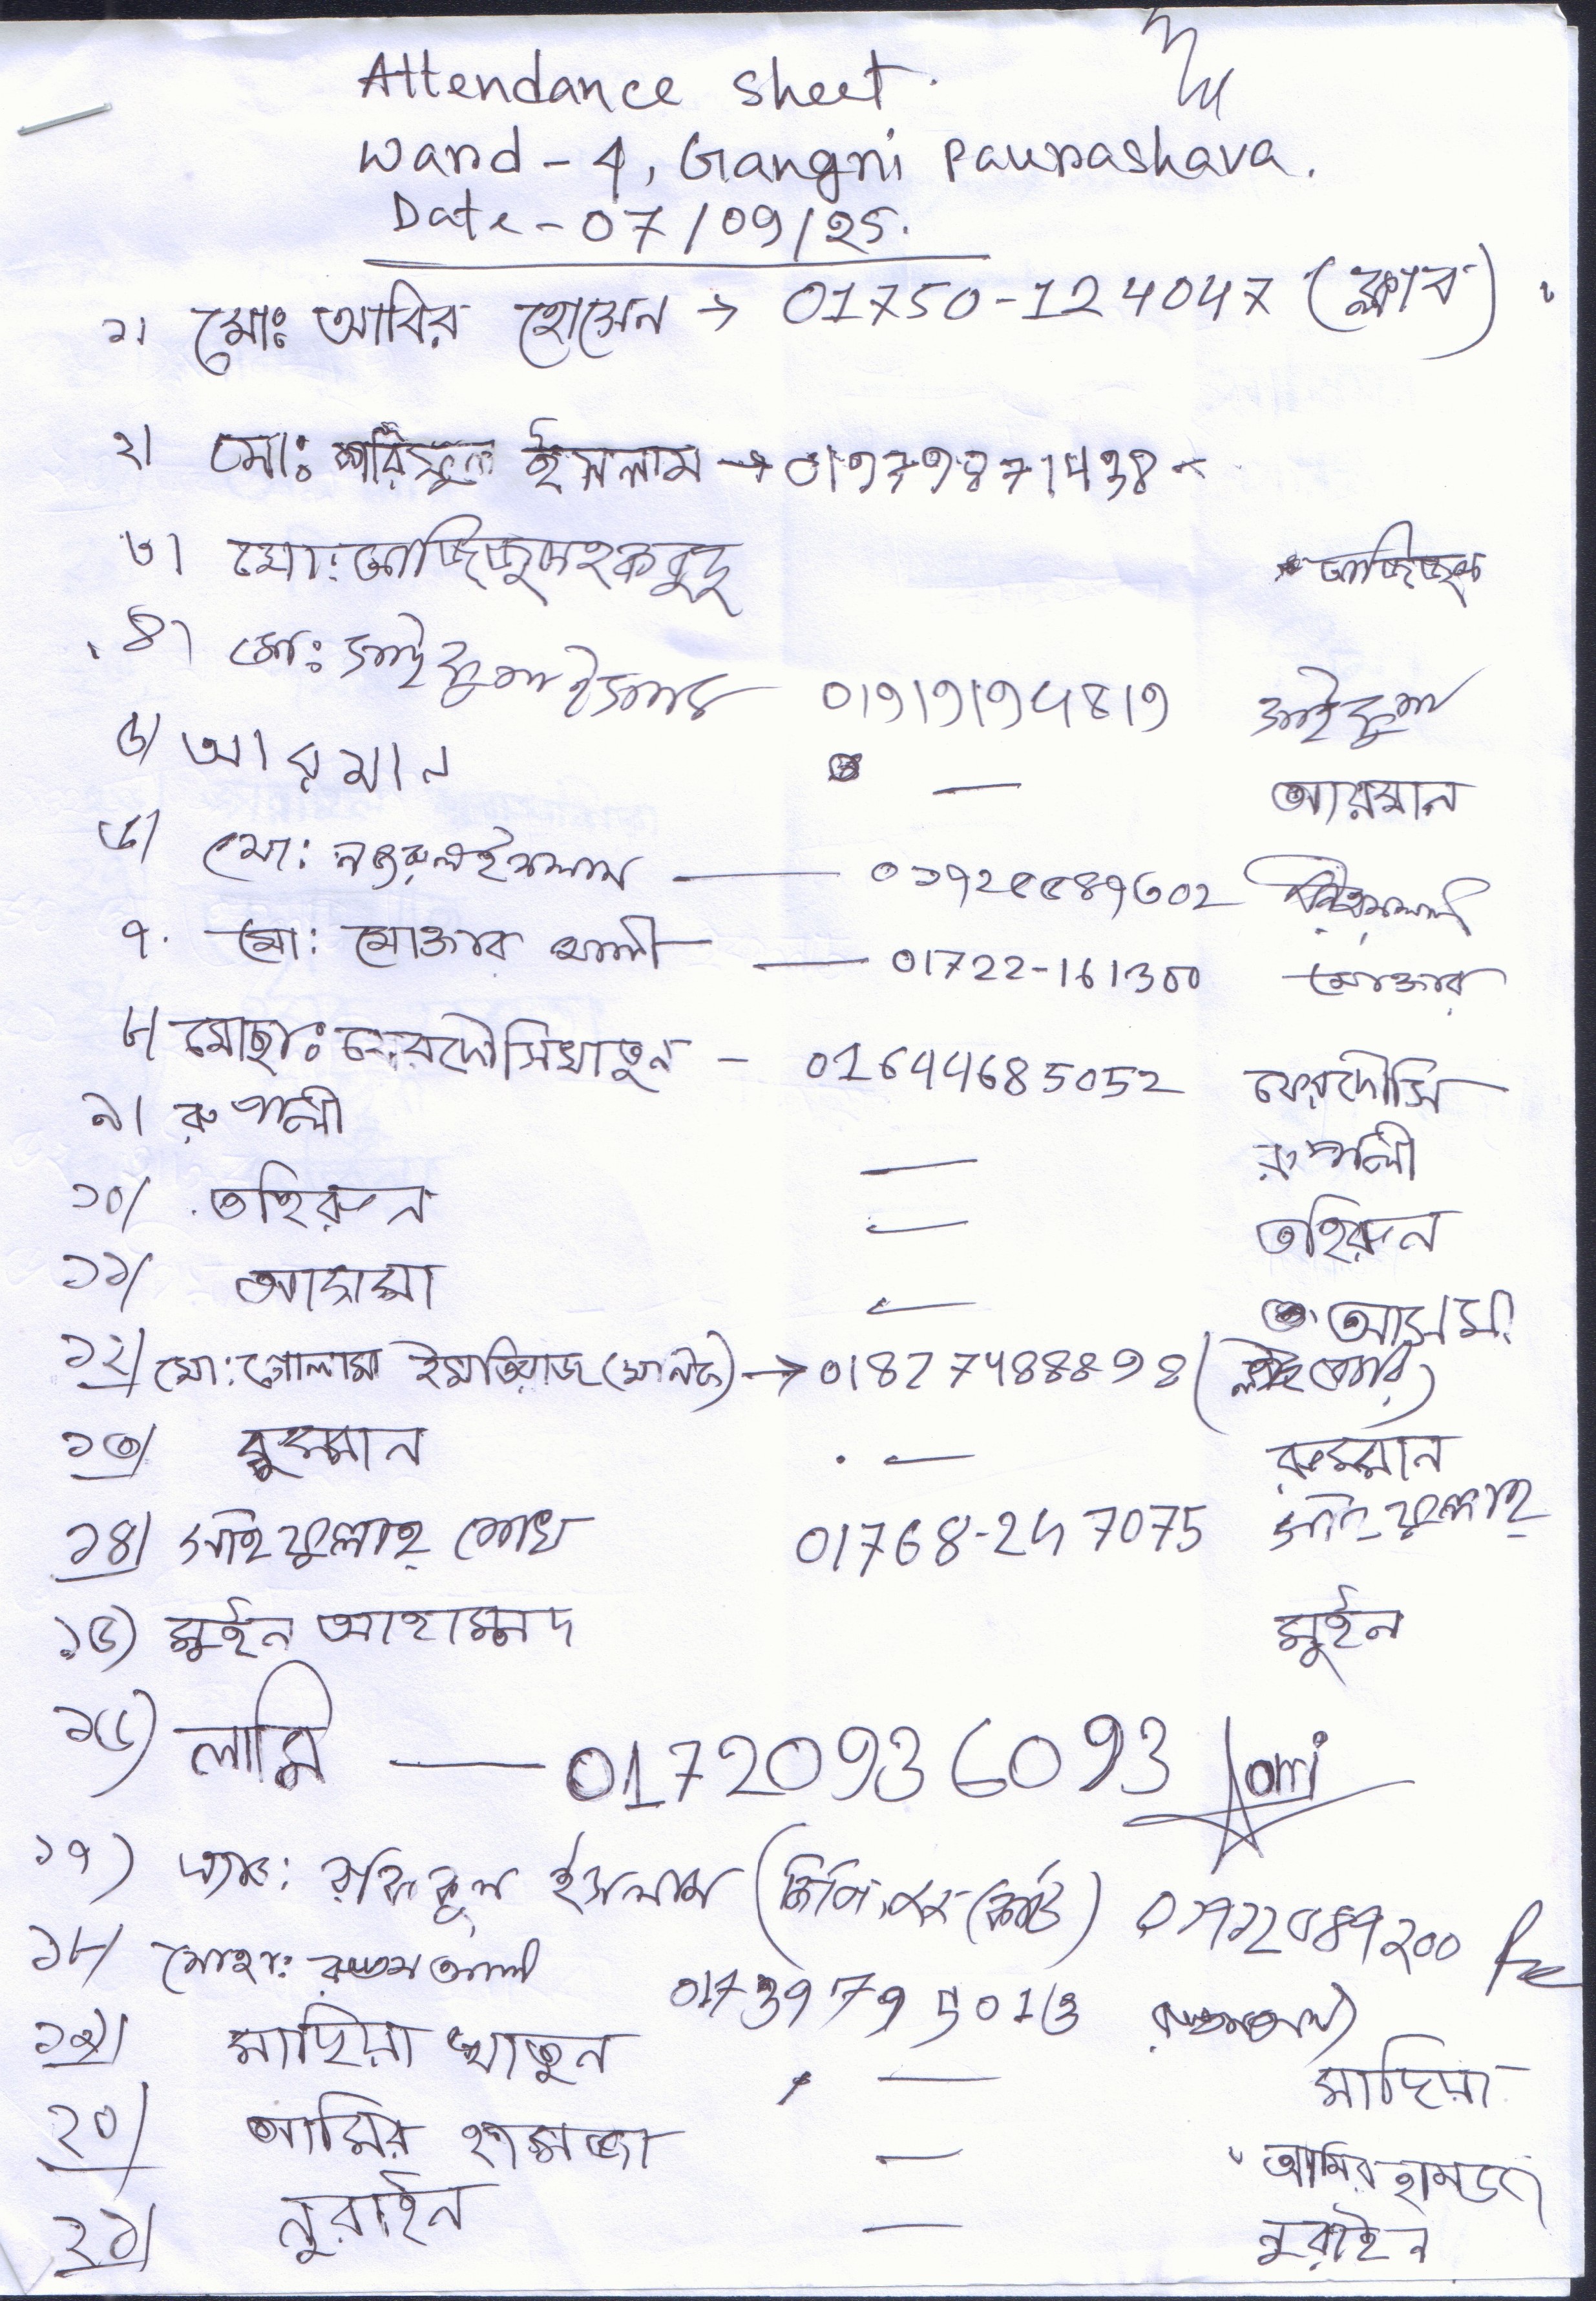 Attendance sheet.
Ward - 4, Gangni Paurashava.
Date - 07/09/25.
১। মোঃ আবির হোসেন → 01750-124047 (ক্লাব)
২। মোঃ শরিফুল ইসলাম → 01979871438
৩। মো: আজিজুল হক বুদু আজিজুল
৪। মোঃ সাইফুল ইসলাম 01919194819 সাইফুল
৫/ আরমান — আরমান
৬/ মো: নজরুল ইসলাম — 01925589602
৭. মো: মোক্তার আলী — 01722-161300 মোক্তার
৮। মোছাঃ ফেরদৌসি খাতুন - 01644685052 ফেরদৌসি
৯। রুপালী — রুপালী
১০/ তহিরুন — তহিরুন
১১/ আছমা — আসমা
১২/ মো: গোলাম ইমতিয়াজ (মানিক) → 01827488898 (লাইব্রেরি)
১৩/ রুমমান — রুমমান
১৪/ সাইফুল্লাহ্ শেখ 01768-247075 সাইফুল্লাহ্
১৫) মুইন আহাম্মদ মুইন
১৬) লামি — 01720936093 Lami
১৭) রফিকুল ইসলাম 01912089200
১৮/ মোহাঃ রুস্তম আলী 01739795013 রুস্তম আলী
১৯/ মাহিয়া খাতুন — মাহিয়া
২০/ আমির হামজা — আমির হামজা
২১/ নুরাইন — নুরাইন